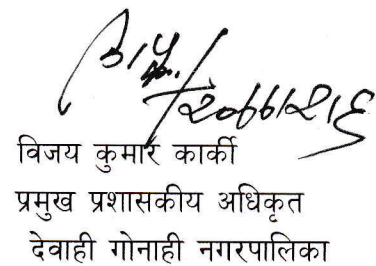 २०७७।२।६
विजय कुमार कार्की
प्रमुख प्रशासकीय अधिकृत
देवाही गोनाही नगरपालिका